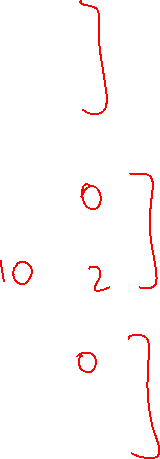 ]
0 ]
10 2
0 ]